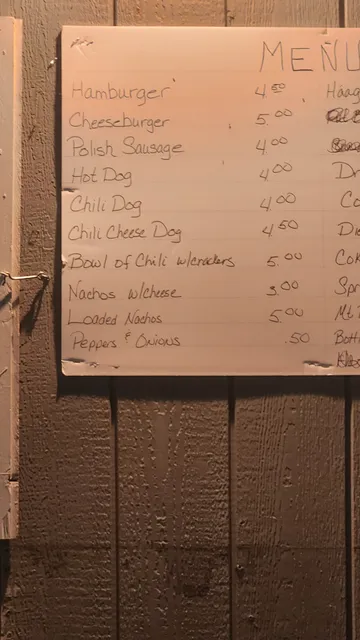 MENU
Hamburger 4.50
Cheeseburger 5.00
Polish Sausage 4.00
Hot Dog 4.00
Chili Dog 4.00
Chili Cheese Dog 4.50
Bowl of Chili w/crackers 5.00
Nachos w/Cheese 3.00
Loaded Nachos 5.00
Peppers & Onions .50
Haag
Dr
Co
Die
Cok
Spr
Mt
Bott